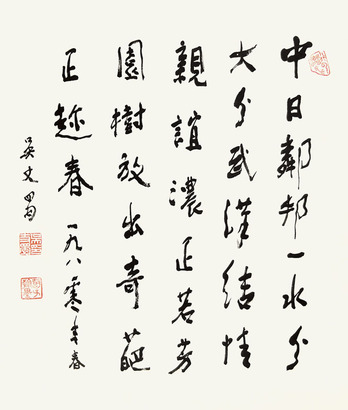 中日鄰邦一水分
大分武漢結情
親誼濃正若芳
園樹放出奇葩
正趁春一九八零年春
吳丈蜀